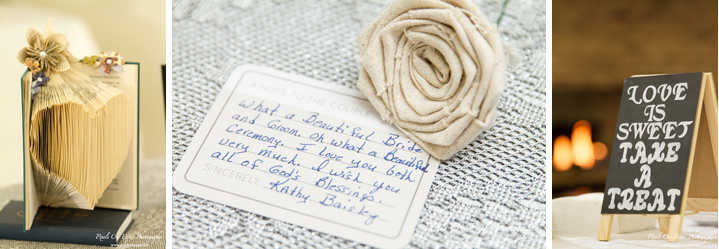 A NOTE TO THE COUPLE
What a Beautiful Bride
and Groom. Oh what a Beautiful
Ceremony. I love you both
very much. I wish you
all of God's Blessings.
SINCERELY, Kathy Baisley
LOVE
IS
SWEET
TAKE
A
TREAT